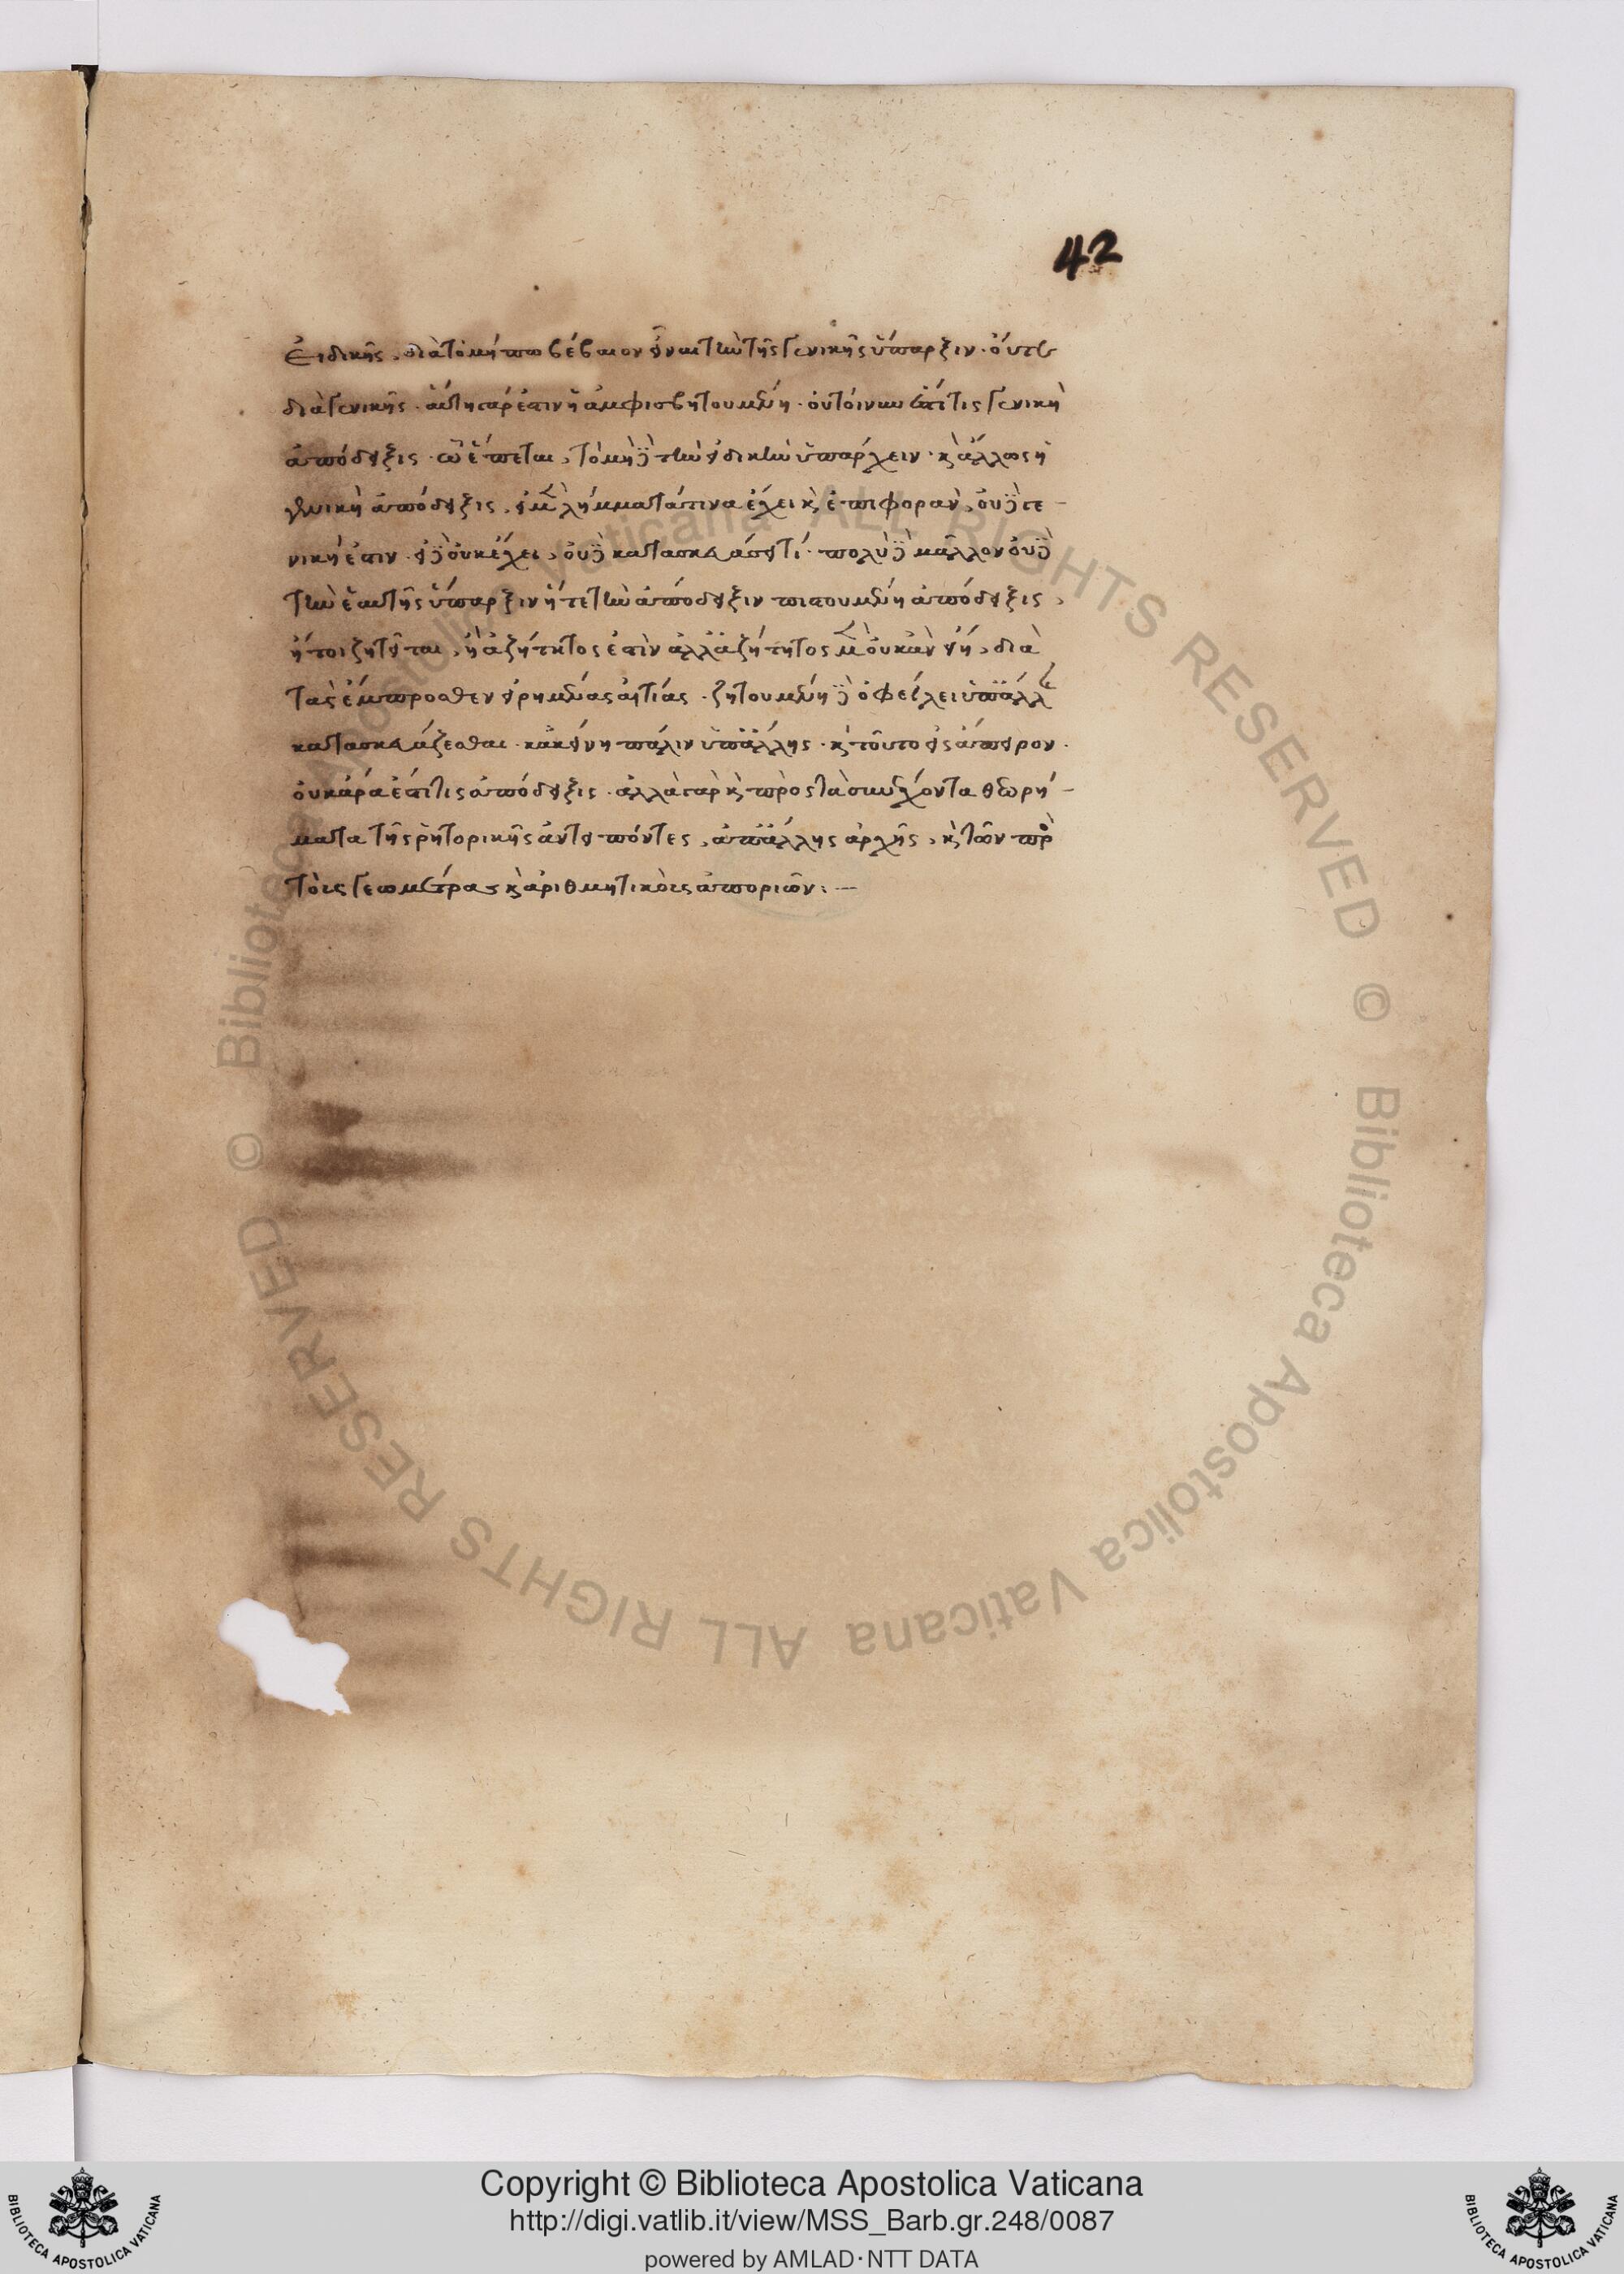 42
Εἰδικῆς, διὰ τὸ μήπω βέβαιον εἶναι τὴν τῆς γενικῆς ὕπαρξιν. οὔτε
διὰ γενικῆς. αὐτὴ γάρ ἐστιν ἡ ἀμφισβητουμένη. οὐ τοίνυν ἐστί τις γενικὴ
ἀπόδειξις. ᾧ ἕπεται, τὸ μηδὲ τὴν εἰδικὴν ὑπάρχειν. κ ἄλλως ἡ
γενικὴ ἀπόδειξις, εἰ μὲν λήμματά τινα ἔχει κ ἐπιφορὰν, οὐδὲ γε-
νική ἐστιν. εἰ δὲ οὐκ ἔχει, οὐδὲ κατασκευάσει τί. πολὺ δὲ μᾶλλον οὐδὲ
τὴν ἑαυτῆς ὕπαρξιν ἥ τε τὴν ἀπόδειξιν πιστουμένη ἀπόδειξις,
ἤτοι ζητεῖται, ἢ ἀζήτητος ἐστὶν ἀλλ' ἀζήτητος μὲν οὐκ ἂν εἴη, διὰ
τὰς ἔμπροσθεν εἰρημένας αἰτίας. ζητουμένη δὲ ὀφείλει ὑπ' ἄλλης
κατασκευάζεσθαι. κἀκείνη πάλιν ὑπ' ἄλλης. κ τοῦτο εἰς ἄπειρον.
οὐκ ἄρα ἐστί τις ἀπόδειξις. ἀλλὰ γὰρ κ πρὸς τὰ συνέχοντα θεωρή-
ματα τῆς ῥητορικῆς ἀντειπόντες, ἀπ' ἄλλης ἀρχῆς, κ τῶν πρὸς
τοὺς γεωμέτρας κ ἀριθμητικοὺς ἀποριῶν: —
Copyright © Biblioteca Apostolica Vaticana
http://digi.vatlib.it/view/MSS_Barb.gr.248/0087
powered by AMLAD · NTT DATA
BIBLIOTECA APOSTOLICA VATICANA
BIBLIOTECA APOSTOLICA VATICANA
© Biblioteca Apostolica Vaticana ALL RIGHTS RESERVED
© Biblioteca Apostolica Vaticana ALL RIGHTS RESERVED